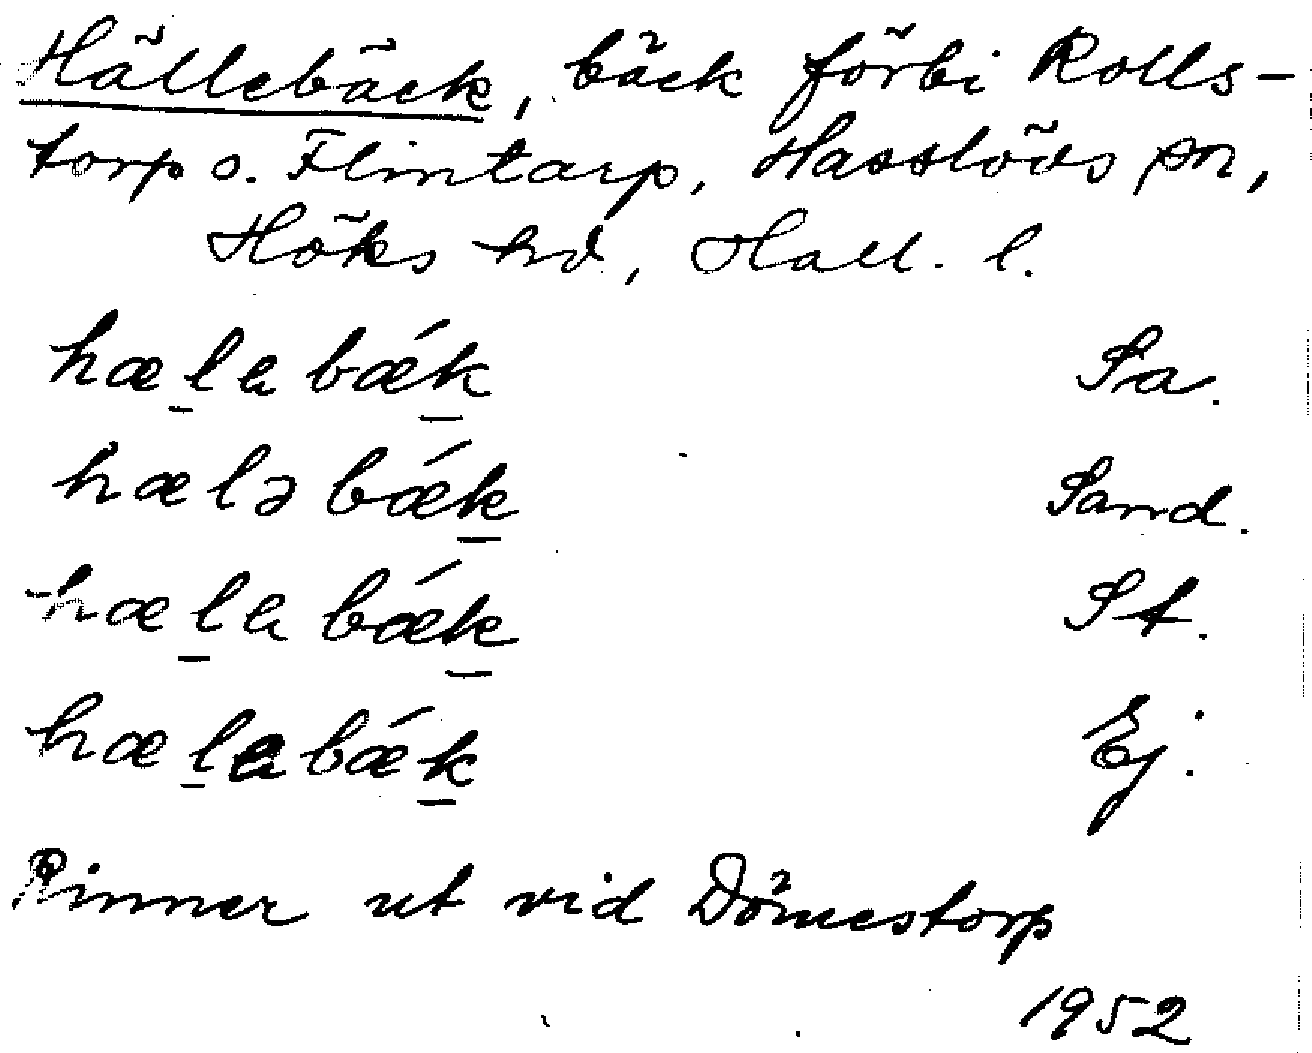 Hällebäck, bäck förbi Rolls-
torp o. Flintarp, Hasslövs sn,
Höks hd, Hall. l.
hælabǽk Sa.
hæləbǽk Sand.
hælabǽk St.
hælabǽk Ej.
Rinner ut vid Dömestorp
1952